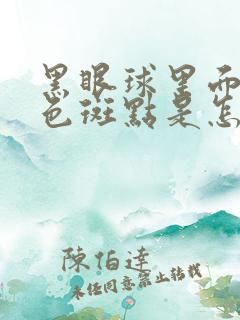 黑眼球里面
色斑點是怎
陳怕達
未经同意禁止转载